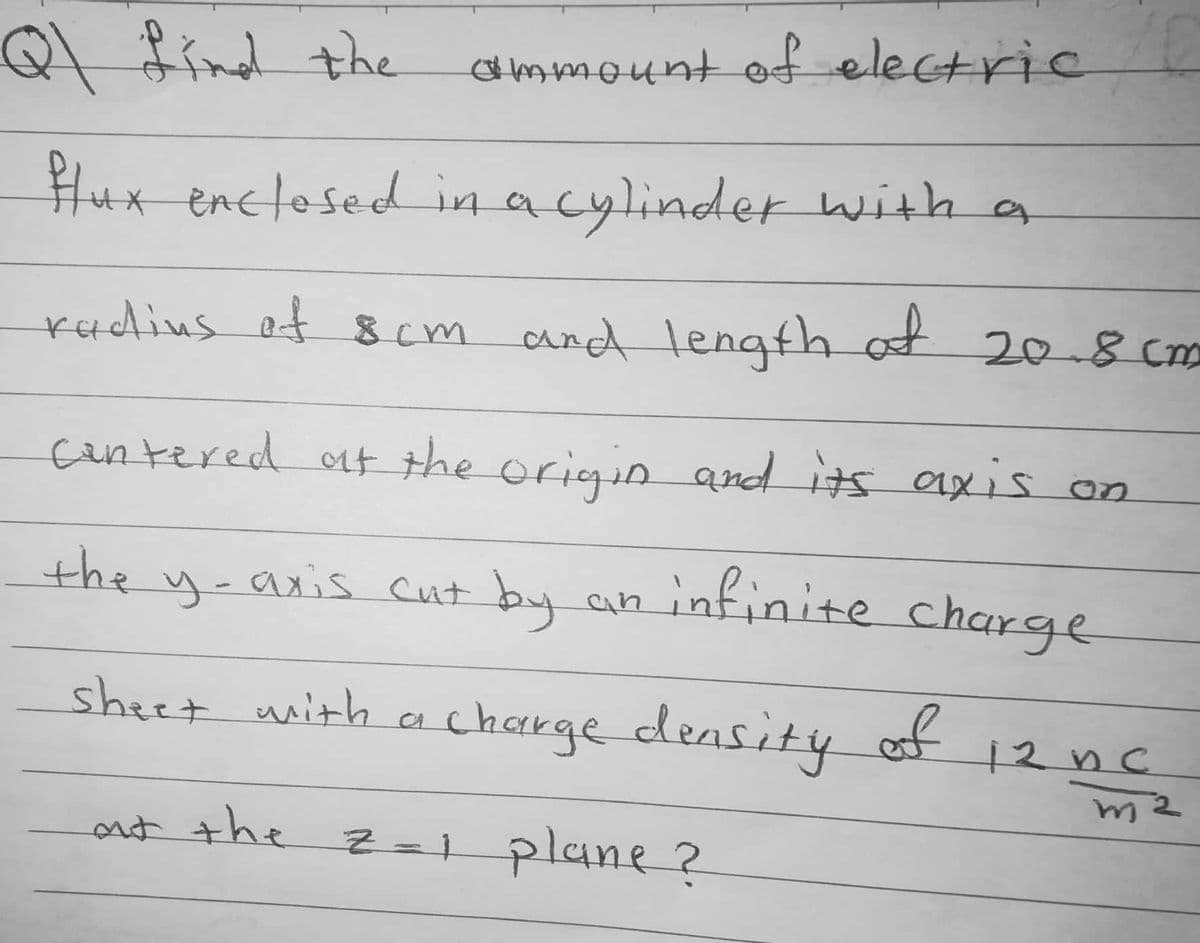 Q\ find the ammount of electric
flux enclosed in a cylinder with a
radius of 8cm and length of 20.8 cm
centered at the origin and its axis on
the y-axis cut by an infinite charge
sheet with a charge density of 12 nc/m²
at the z=1 plane?